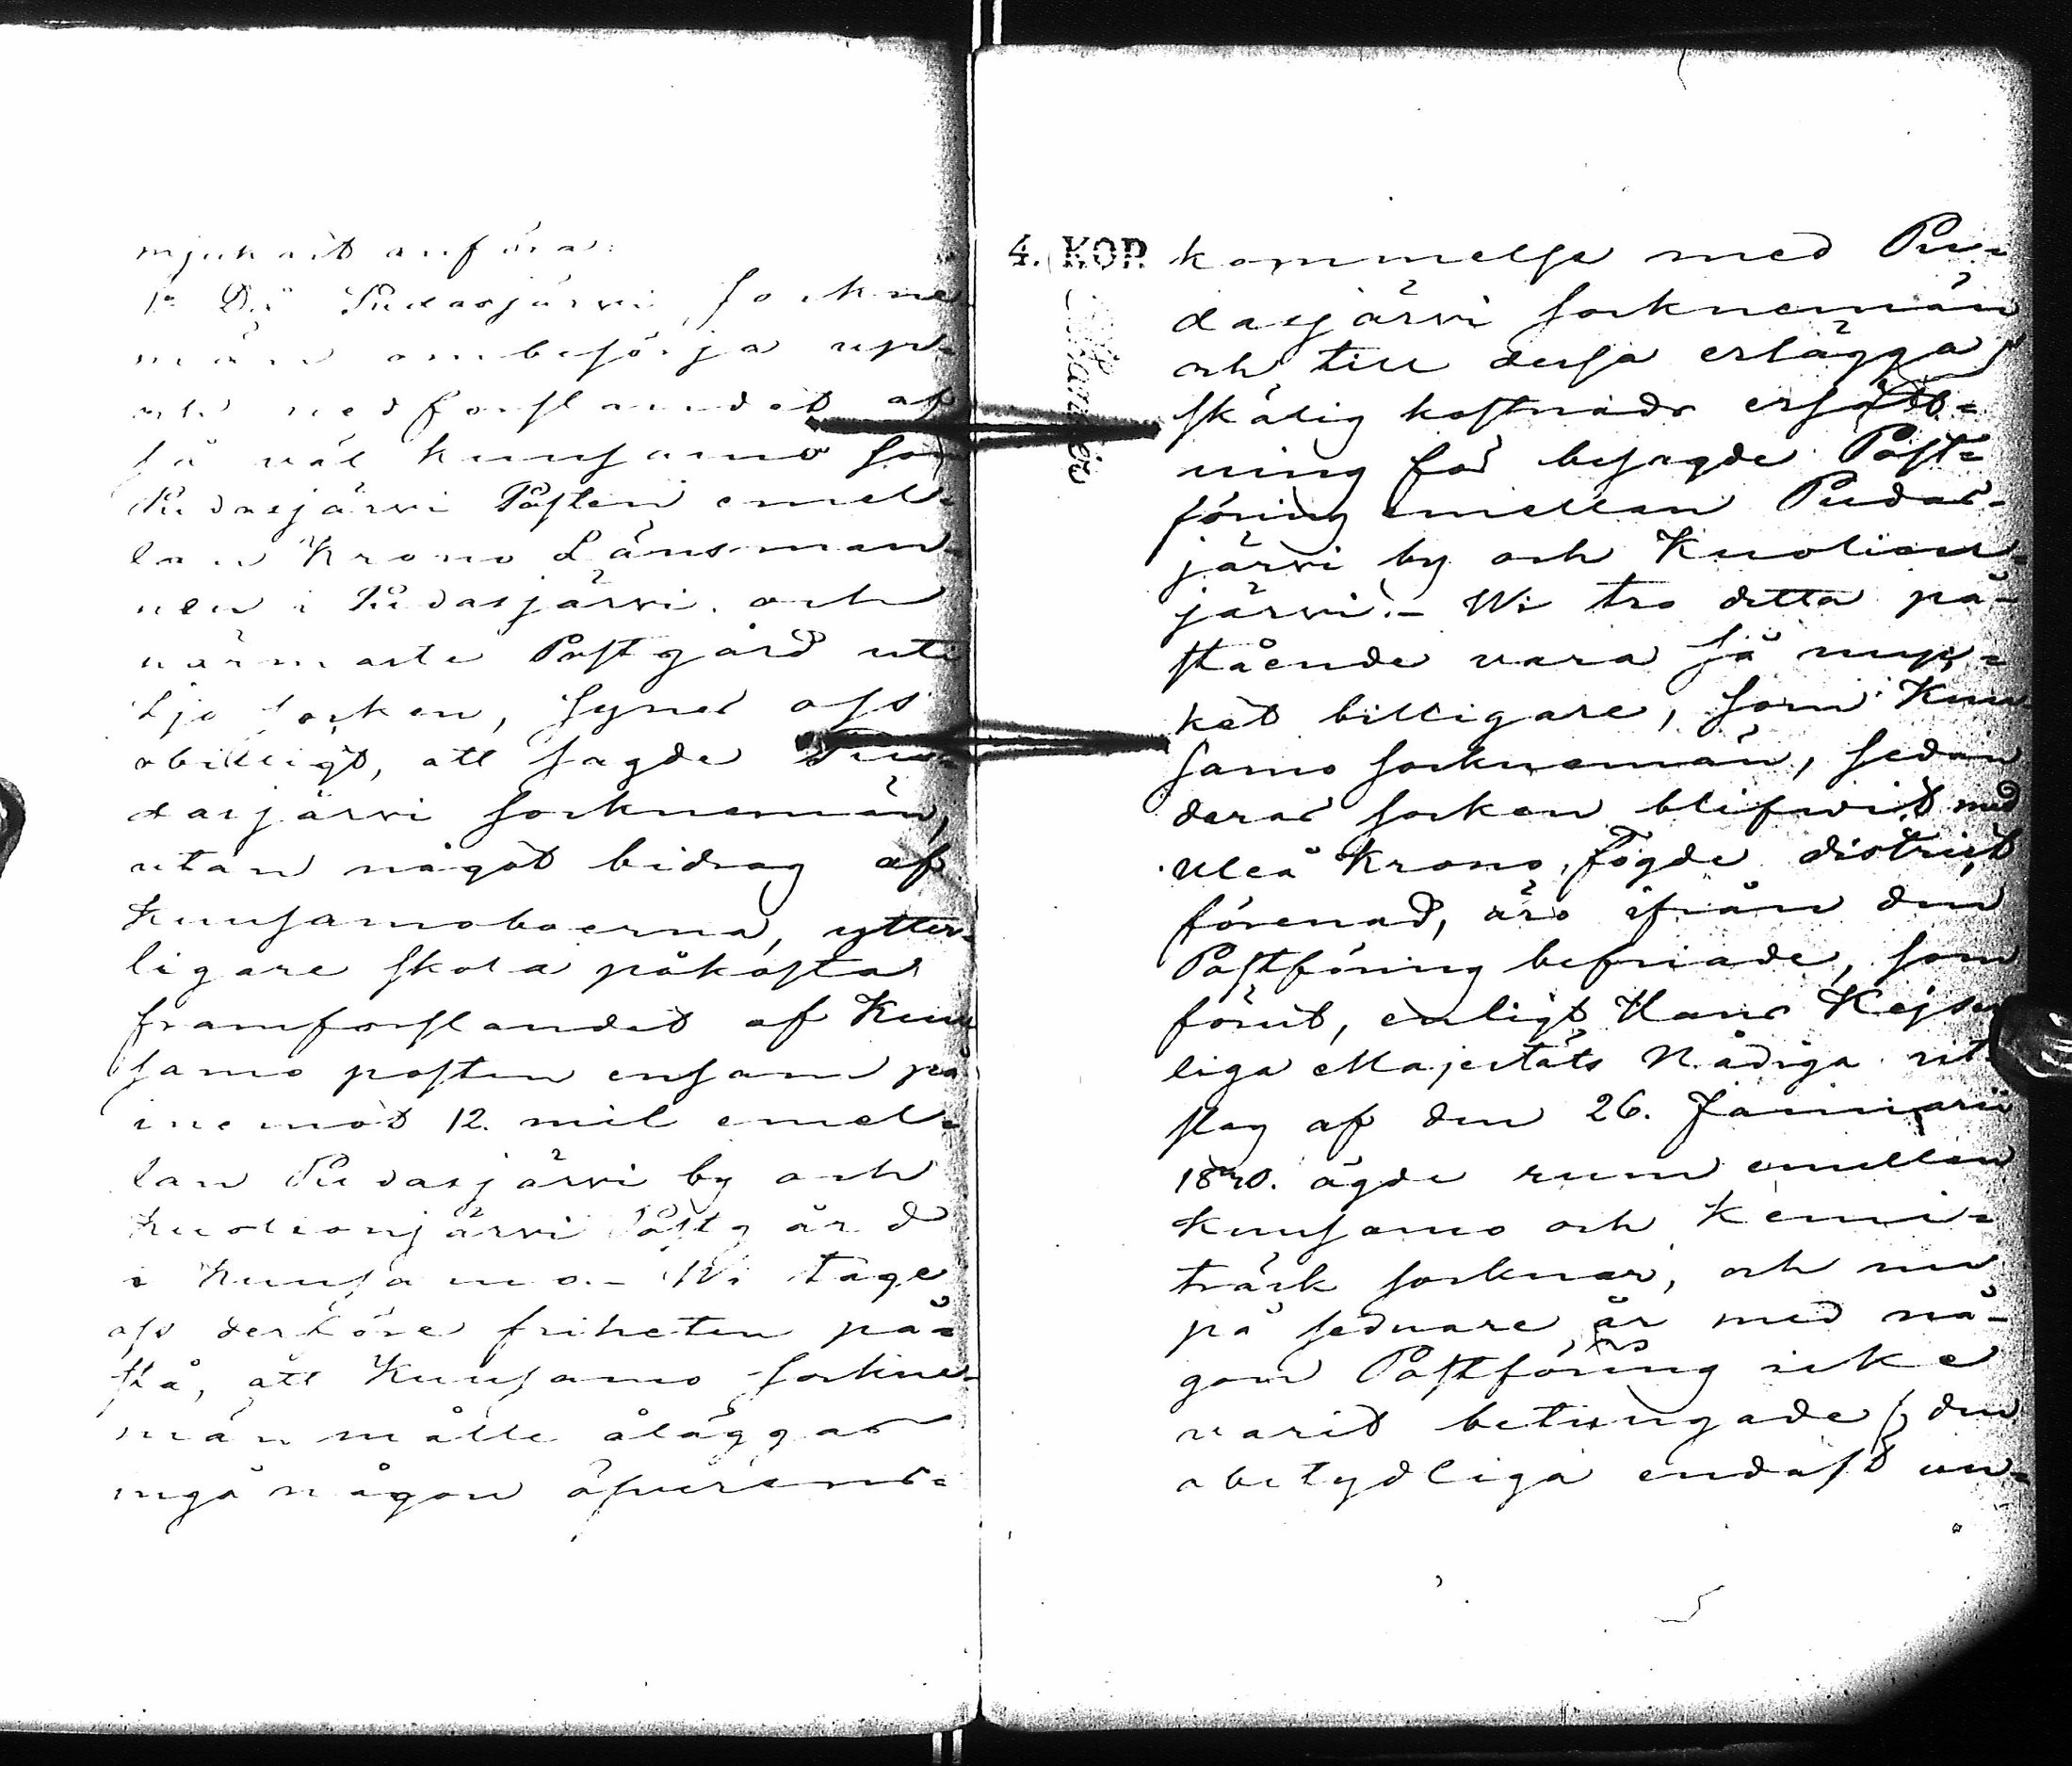 mjukast anföra:
1o Då Pudasjärvi Sockne
män ombesörja upp-
och nedforslandet af
så väl Kuusamo som
Pudasjärvi Posten emel-
lan Krono Länsman-
nen i Pudasjärvi och
närmaste Postgård uti
Ijo socken, synes oss
obilligt, att sagde Pu-
dasjärvi socknemän,
utan något bidrag af
Kuusamoboerna, ytter-
ligare skola påkosta
framforslandet af Kuu
samo posten ensam på
inemot 12. mil emel-
lan Pudasjärvi by och
Kuolionjärvi Postgård
i Kuusamo. – Wi tage
oss derföre friheten på-
stå, att Kuusamo sockne-
män måtte åläggas
ingå någon öfverens-
4. KOP.
kommelse med Pu-
dasjärvi socknemän
och till dessa erlägga
skälig kostnads ersätt-
ning för besagde Post-
föring emellan Pudas-
järvi by och Kuolion-
järvi. – Wi tro detta på-
stående vara så myc-
ket billigare, som Kuu
samo socknemän, sedan
deras socken blifwit med
Uleå Krono Fögde district
förenad, äro ifrån den
Postföring befriade, som
förut, enligt Hans Kejser
liga Majestäts Nådiga ut
slag af den 26. Januarii
1820. ägde rum emellan
Kuusamo och Kemi-
träsk socknar, och nu
på sednare år med nå-
gon Postföring icke
varit betungade, den
obetydliga endast un-